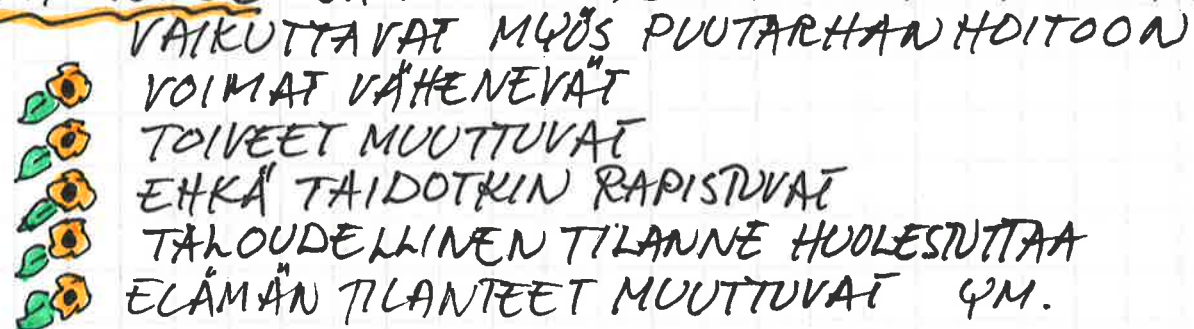 VAIKUTTAVAT MYÖS PUUTARHAN HOITOON
VOIMAT VÄHENEVÄT
TOIVEET MUUTTUVAT
EHKÄ TAIDOTKIN RAPISTUVAT
TALOUDELLINEN TILANNE HUOLESTUTTAA
ELÄMÄN TILANTEET MUUTTUVAT YM.